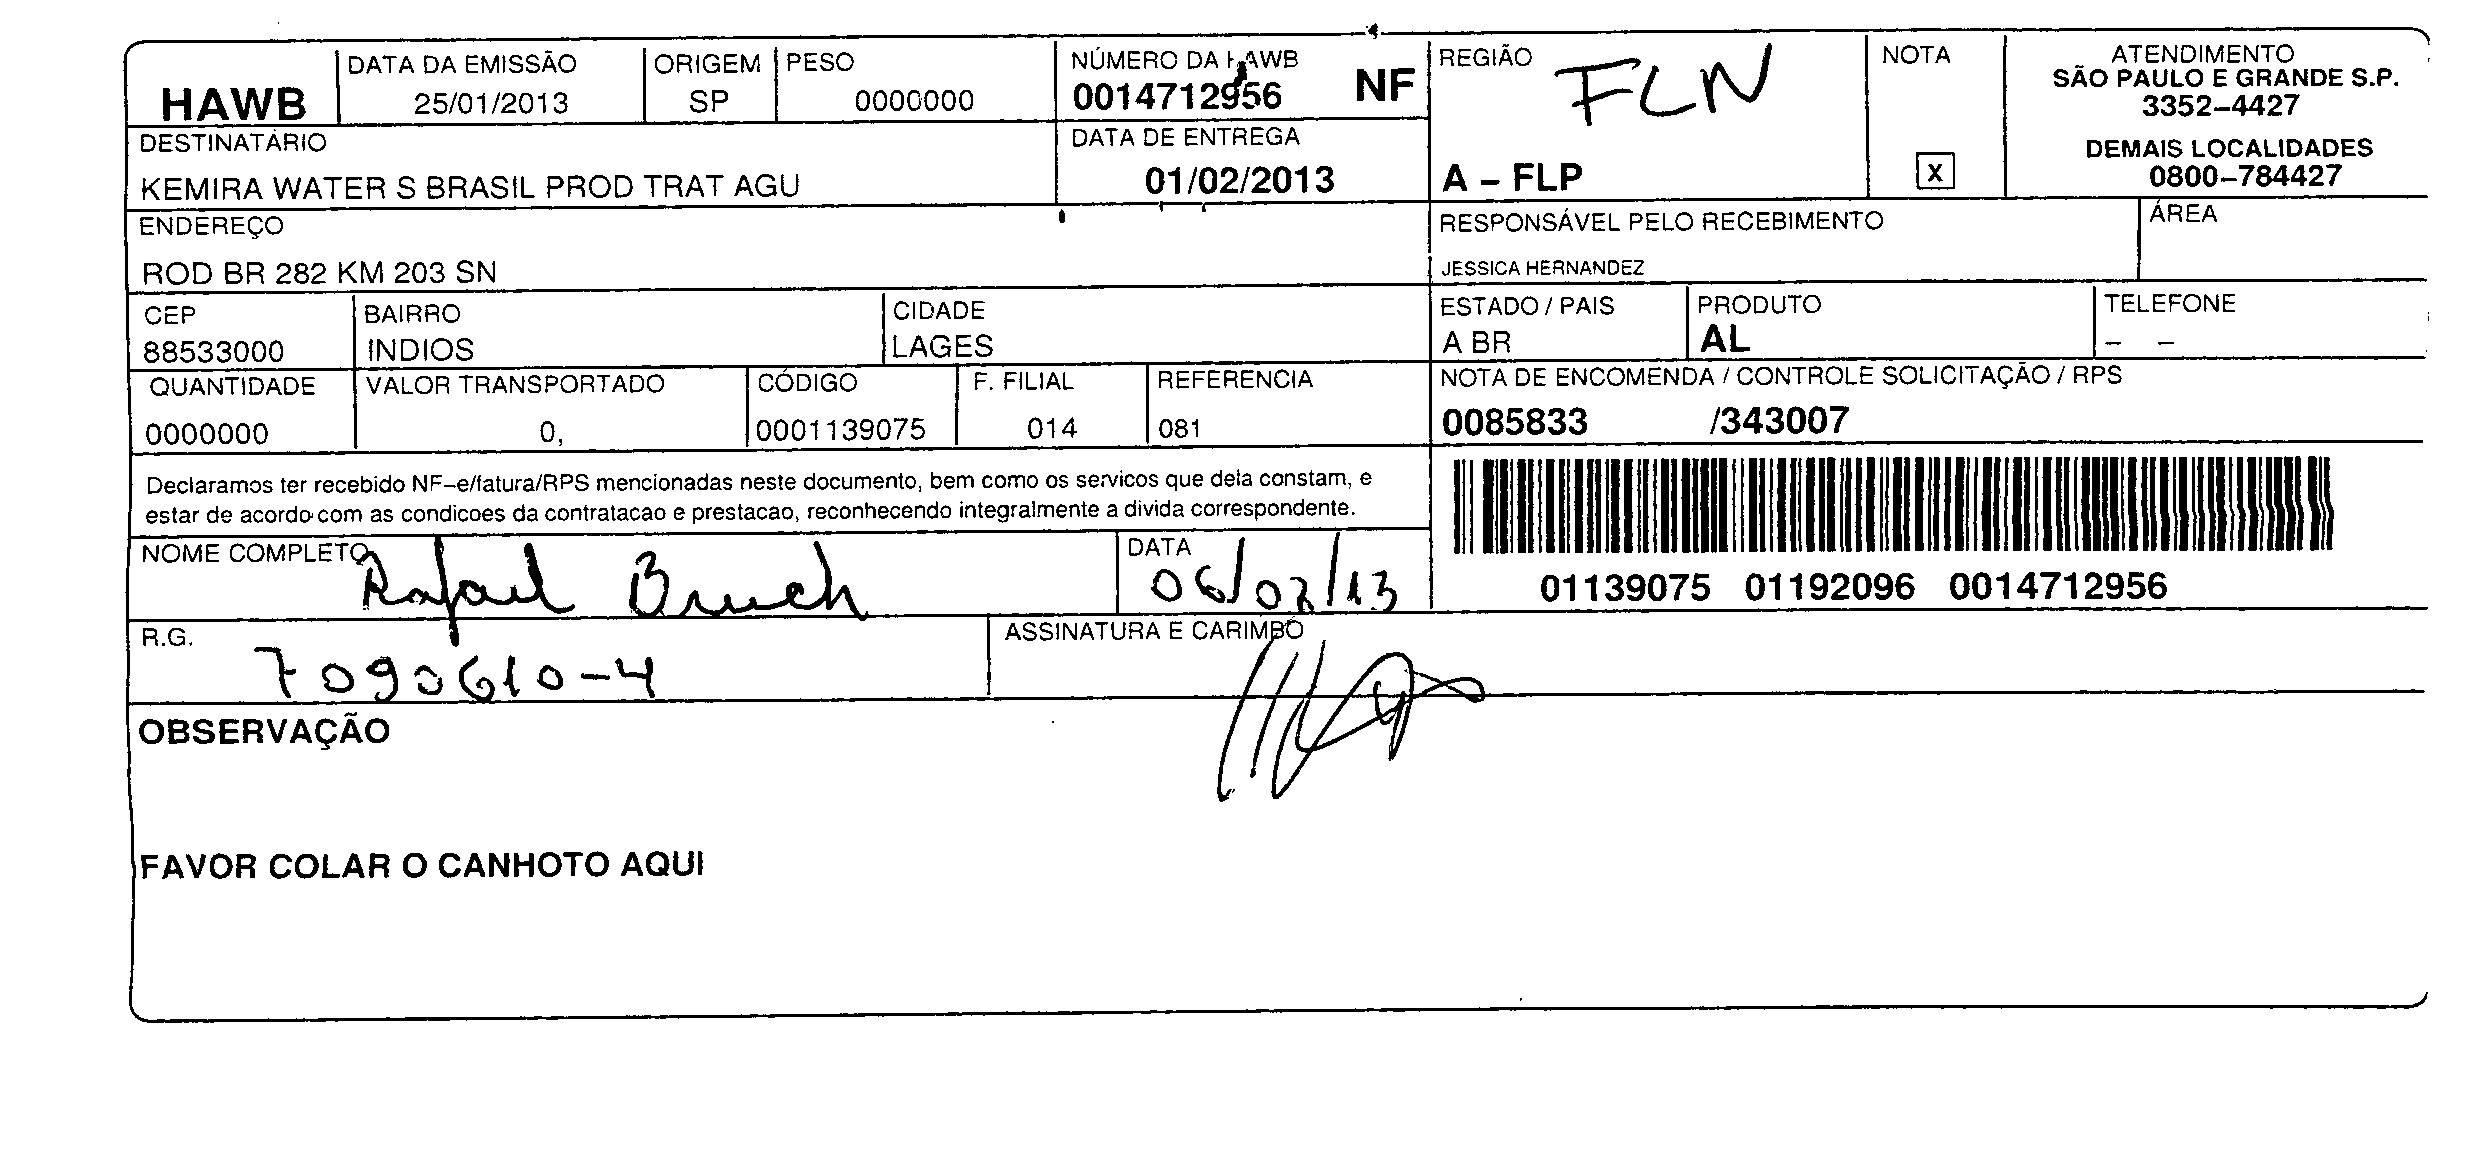 HAWB
DATA DA EMISSÃO
25/01/2013
ORIGEM
SP
PESO
0000000
NÚMERO DA HAWB
0014712956 NF
REGIÃO
FLN
A – FLP
NOTA
X
ATENDIMENTO
SÃO PAULO E GRANDE S.P.
3352–4427
DEMAIS LOCALIDADES
0800–784427
DESTINATÁRIO
KEMIRA WATER S BRASIL PROD TRAT AGU
DATA DE ENTREGA
01/02/2013
ENDEREÇO
ROD BR 282 KM 203 SN
RESPONSÁVEL PELO RECEBIMENTO
JESSICA HERNANDEZ
ÁREA
CEP
88533000
BAIRRO
INDIOS
CIDADE
LAGES
ESTADO / PAIS
A BR
PRODUTO
AL
TELEFONE
– –
QUANTIDADE
0000000
VALOR TRANSPORTADO
0,
CÓDIGO
0001139075
F. FILIAL
014
REFERENCIA
081
NOTA DE ENCOMENDA / CONTROLE SOLICITAÇÃO / RPS
0085833 /343007
Declaramos ter recebido NF–e/fatura/RPS mencionadas neste documento, bem como os servicos que dela constam, e
estar de acordo com as condicoes da contratacao e prestacao, reconhecendo integralmente a divida correspondente.
01139075 01192096 0014712956
NOME COMPLETO
Rafael Bruch
DATA
06/02/13
R.G.
7090610-4
ASSINATURA E CARIMBO
OBSERVAÇÃO
FAVOR COLAR O CANHOTO AQUI